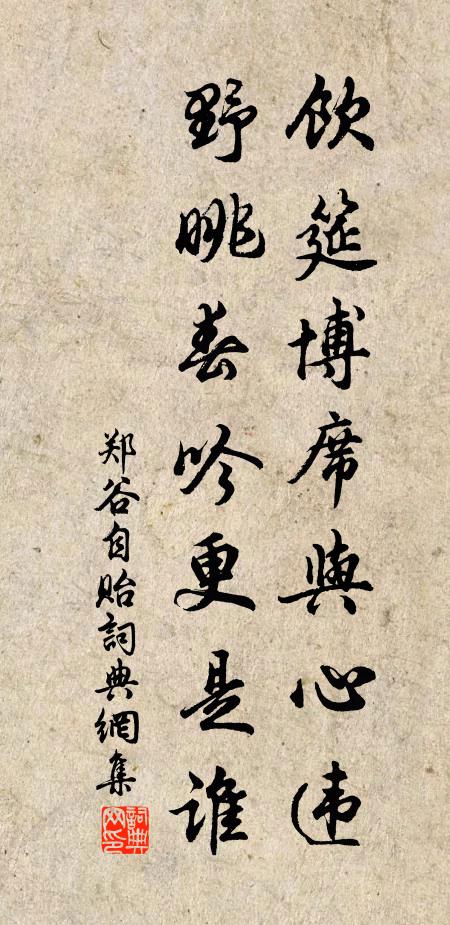 飲筵博席與心违
野眺春吟更是谁
郑谷自贻詞典網集
詞典网印